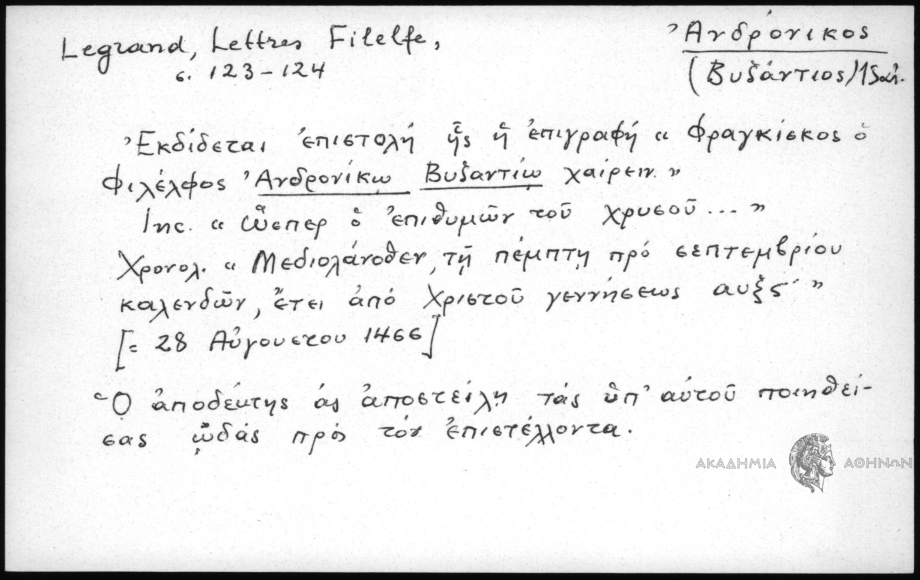 Legrand, Lettres Filelfe,
σ. 123-124
Ἀνδρόνικος
(Βυζάντιος) 15 αἰ.
Ἐκδίδεται ἐπιστολή ἧς ἡ ἐπιγραφή « Φραγκίσκος ὁ
Φιλέλφος Ἀνδρονίκῳ Βυζαντίῳ χαίρειν. »
Inc. « ὥσπερ ὁ ἐπιθυμῶν τοῦ χρυσοῦ... »
Χρονολ. « Μεδιολάνοθεν, τῇ πέμπτῃ πρό σεπτεμβρίου
καλενδῶν, ἔτει ἀπό Χριστοῦ γεννήσεως αυξς´ »
[= 28 Αὐγούστου 1466]
Ὁ ἀποδέκτης ἄς ἀποστείλῃ τάς ὑπ' αὐτοῦ ποιηθεί-
σας ᾠδάς πρός τόν ἐπιστέλλοντα.
ΑΚΑΔΗΜΙΑ ΑΘΗΝΩΝ